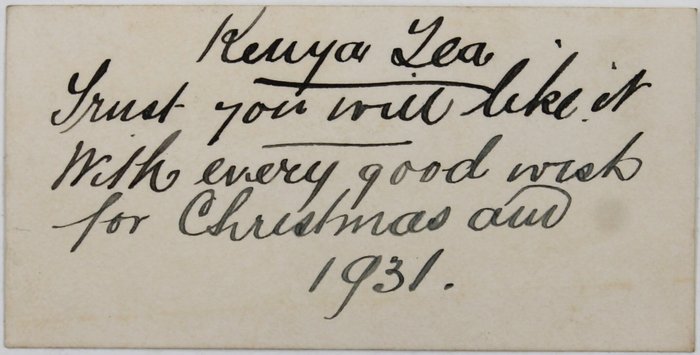 Kenya Tea
Trust you will like it
With every good wish
for Christmas and
1931.